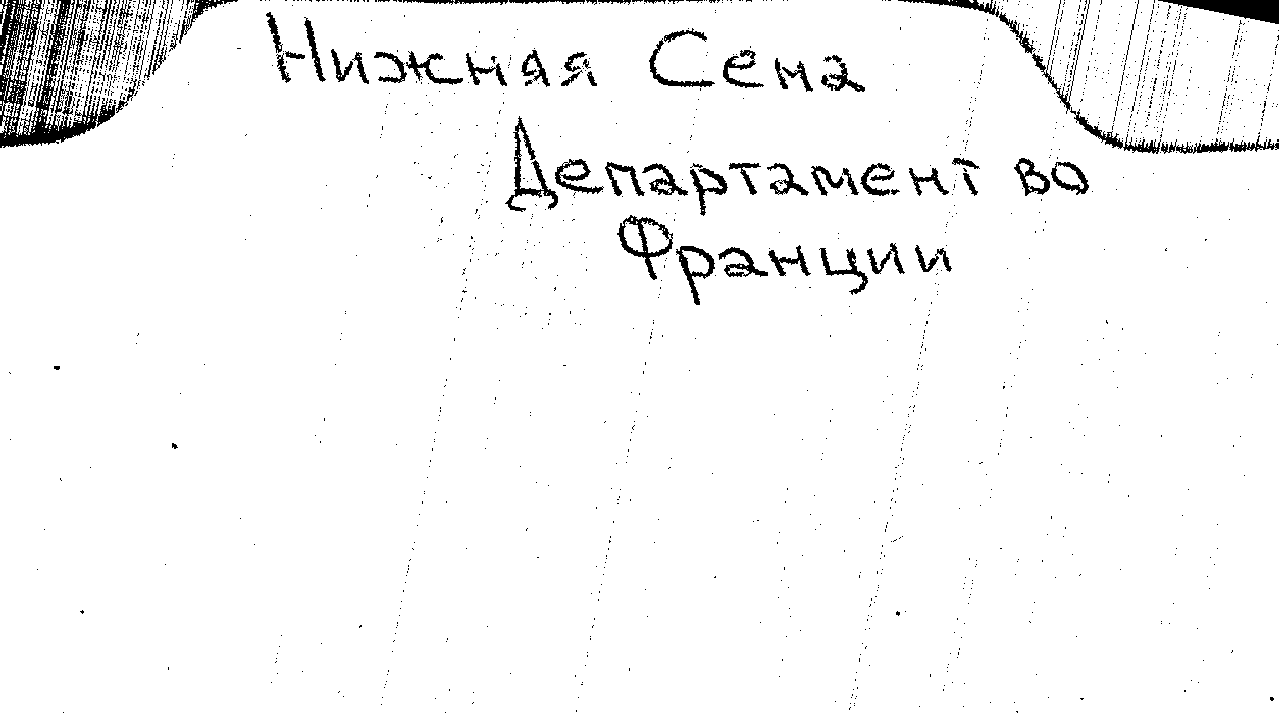 Нижная Сена
Департамент во
Франции